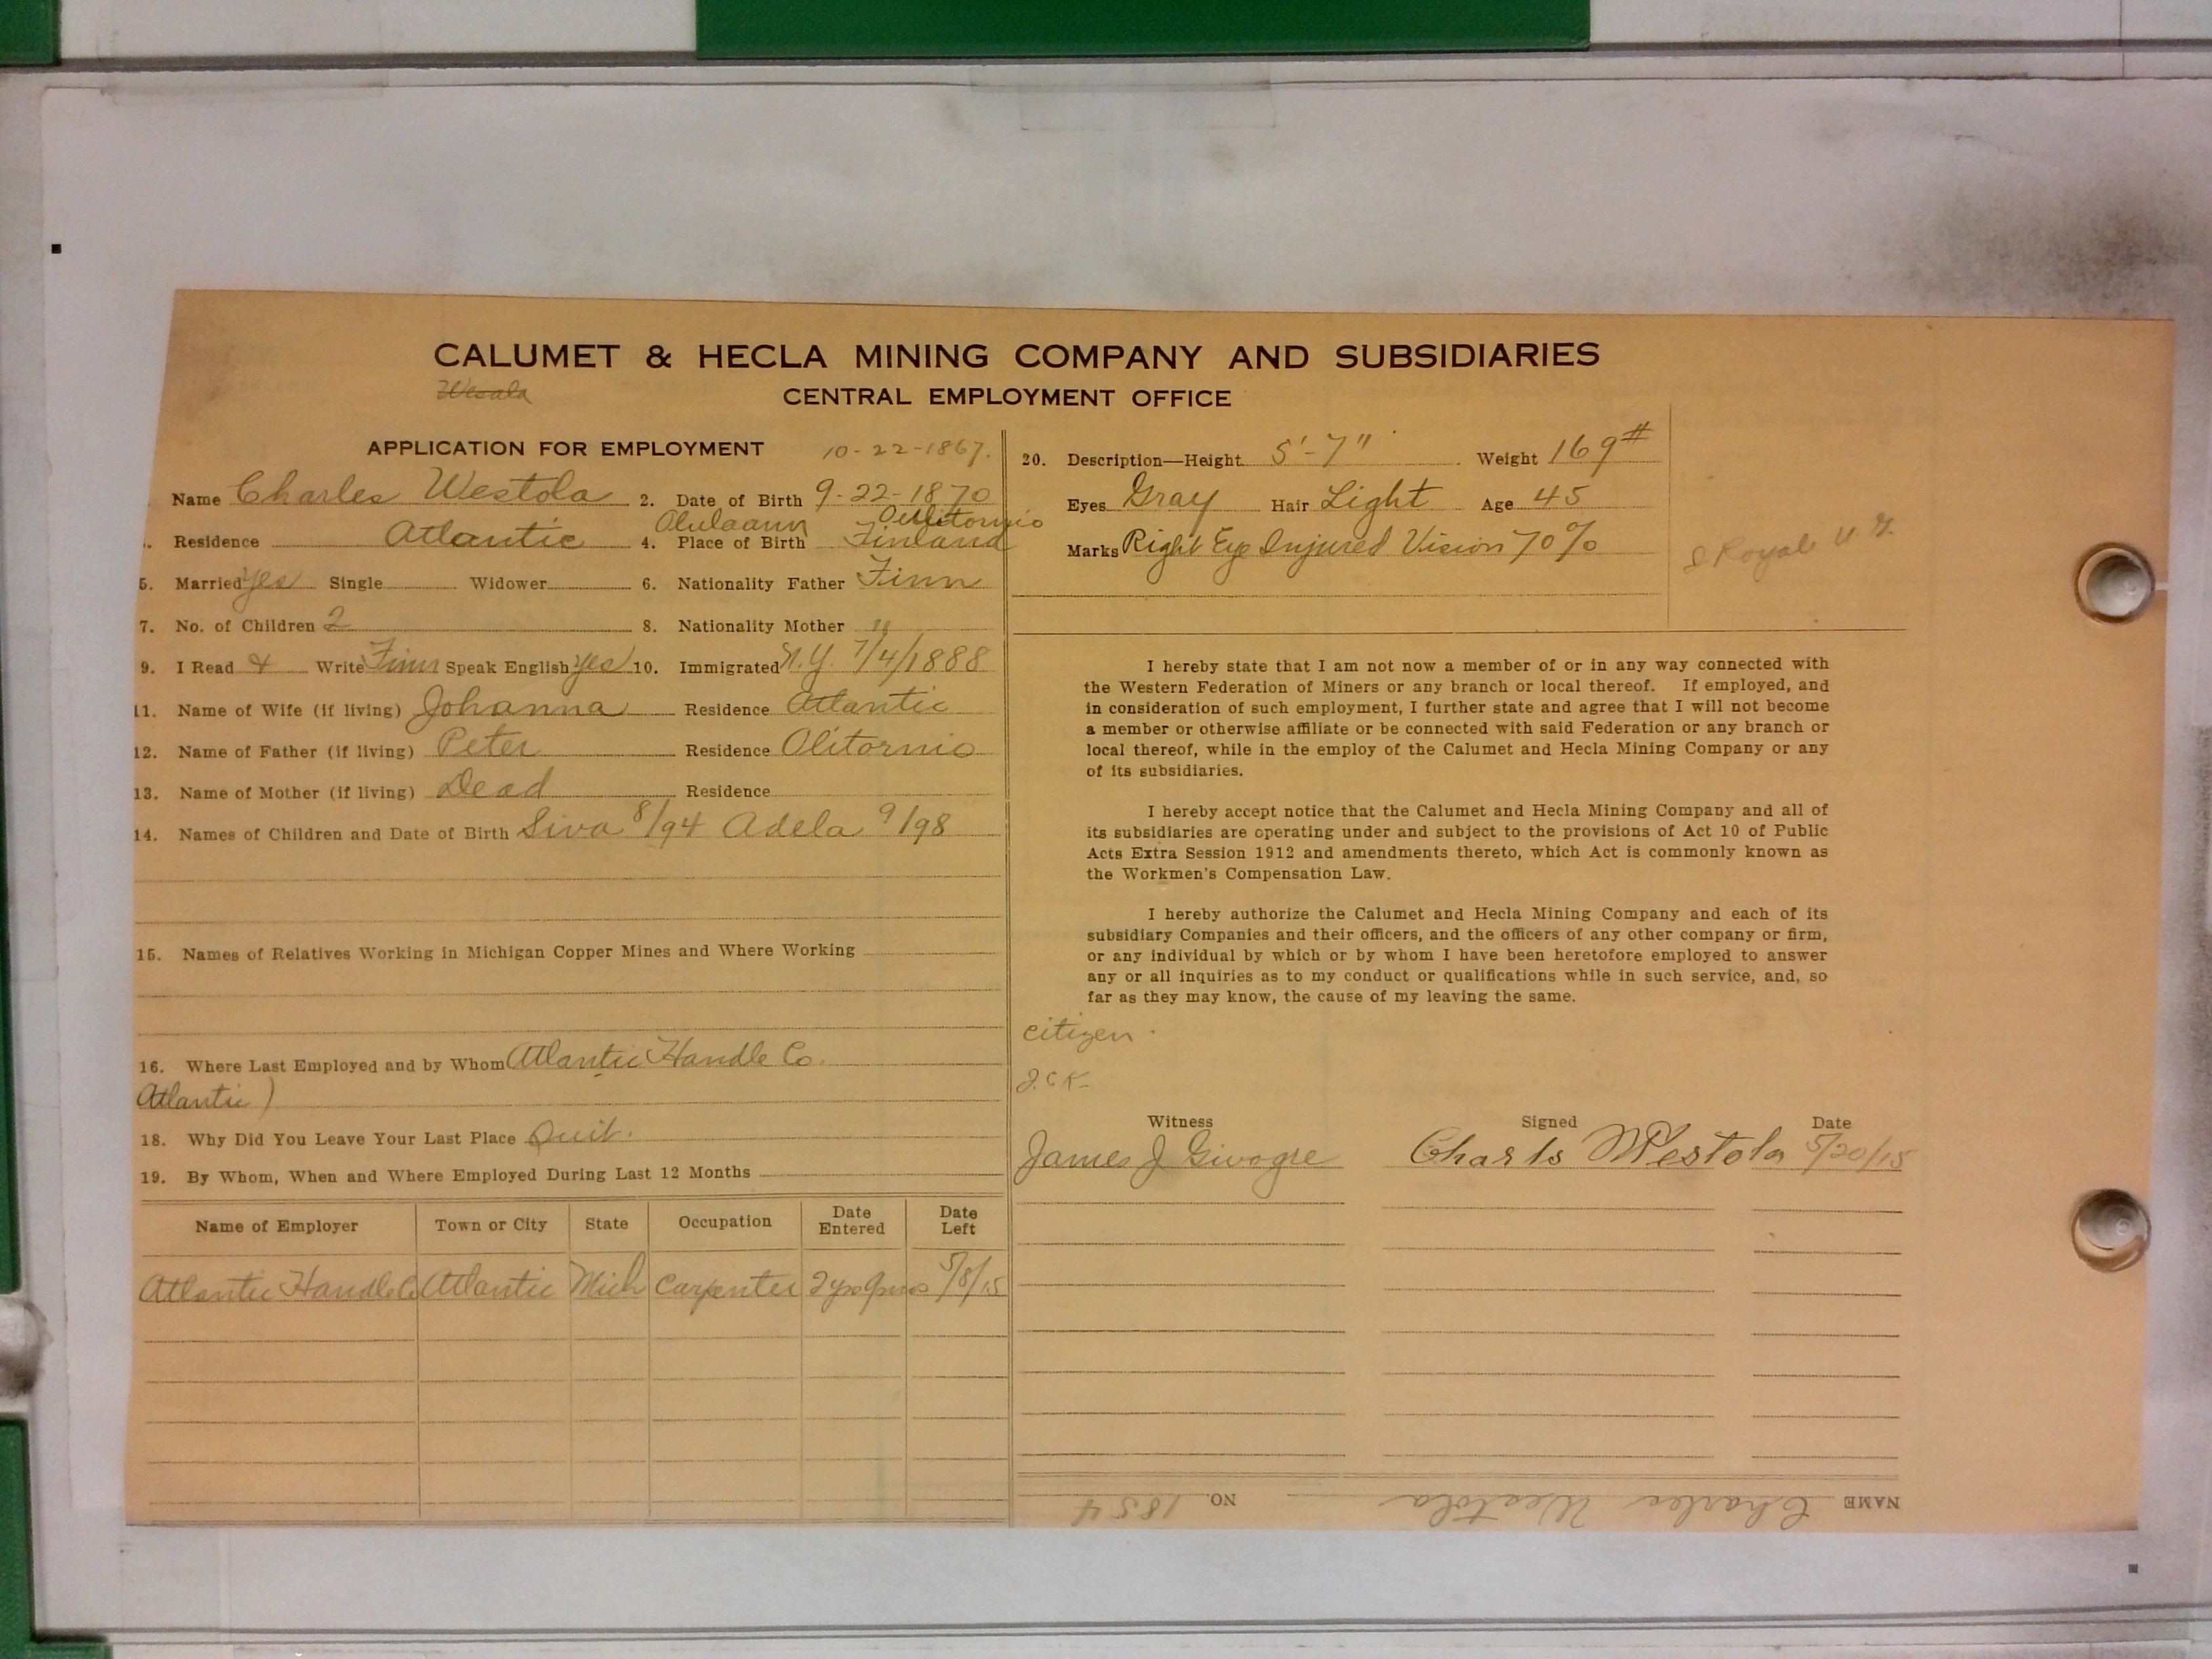 CALUMET & HECLA MINING COMPANY AND SUBSIDIARIES
Wesala
CENTRAL EMPLOYMENT OFFICE
APPLICATION FOR EMPLOYMENT 10-22-1867.
Name Charles Westola 2. Date of Birth 9-22-1870
Residence Atlantic 4. Place of Birth Finland
5. Married yes Single Widower 6. Nationality Father Finn
7. No. of Children 2 8. Nationality Mother "
9. I Read & Write Finn Speak English yes 10. Immigrated N.Y. 7/4/1888
11. Name of Wife (if living) Johanna Residence Atlantic
12. Name of Father (if living) Peter Residence Olitornio
13. Name of Mother (if living) Dead Residence
14. Names of Children and Date of Birth Siva 8/94 Adela 9/98
15. Names of Relatives Working in Michigan Copper Mines and Where Working
16. Where Last Employed and by Whom Atlantic Handle Co.
Atlantic)
18. Why Did You Leave Your Last Place Quit.
19. By Whom, When and Where Employed During Last 12 Months
Name of Employer Town or City State Occupation Date Entered Date Left
Atlantic Handle Co Atlantic Mich Carpenter 2 yrs 9 mos 5/8/15
20. Description—Height 5'-7" Weight 169#
Eyes Gray Hair Light Age 45
Marks Right Eye Injured Vision 70%
Royal
I hereby state that I am not now a member of or in any way connected with
the Western Federation of Miners or any branch or local thereof. If employed, and
in consideration of such employment, I further state and agree that I will not become
a member or otherwise affiliate or be connected with said Federation or any branch or
local thereof, while in the employ of the Calumet and Hecla Mining Company or any
of its subsidiaries.
I hereby accept notice that the Calumet and Hecla Mining Company and all of
its subsidiaries are operating under and subject to the provisions of Act 10 of Public
Acts Extra Session 1912 and amendments thereto, which Act is commonly known as
the Workmen's Compensation Law.
I hereby authorize the Calumet and Hecla Mining Company and each of its
subsidiary Companies and their officers, and the officers of any other company or firm,
or any individual by which or by whom I have been heretofore employed to answer
any or all inquiries as to my conduct or qualifications while in such service, and, so
far as they may know, the cause of my leaving the same.
citizen
Witness Signed Date
James J Charls Westola 5/20/15
NAME Charles Westola NO. 1854